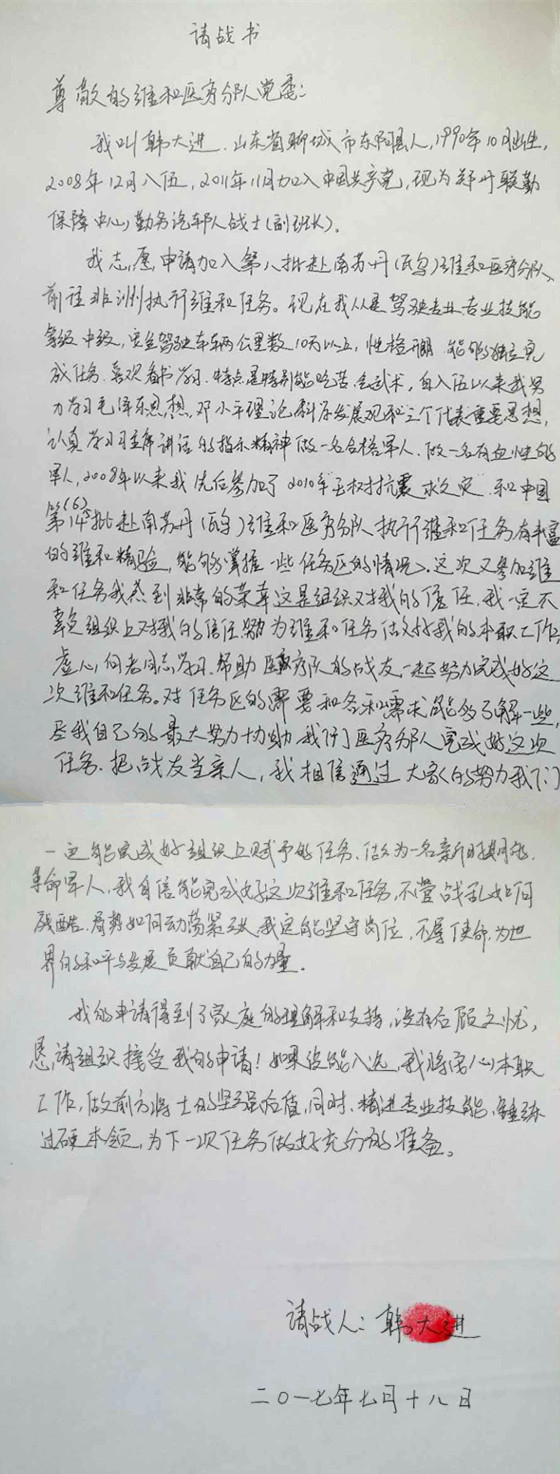 请战书
尊敬的维和医疗分队党委:
我叫韩大进.山东省聊城市东阿县人,1990年10月出生,
2008年12月入伍,2011年11月加入中国共产党,现为郑州联勤
保障中心勤务汽车队战士(副班长)。
我志愿申请加入第八批赴南苏丹(瓦乌)维和医疗分队
前往非洲执行维和任务。现在我从是驾驶专业专业技能
等级中级,安全驾驶车辆公里数10万以上,性格 能够独立完
成任务.喜欢看书学习.特点是特别能吃苦.会武术,自入伍以来我努
力学习毛泽东思想,邓小平理论,科学发展观和三个代表重要思想,
认真学习习主席讲话的指示精神做一名合格军人.做一名有血性的
军人,2008年以来我先后参加了2010年玉树抗震救灾.和中国
第(6)批赴南苏丹(瓦乌)维和医疗分队执行维和任务有丰富
的维和精验,能够掌握一些任务区的情况,这次又参加维
和任务我感到非常的荣幸这是组织又对我的信任,我一定不
辜负组织上对我的信任努力为维和任务做好我的本职工作,
虚心向老同志学习.帮助医疗队的战友,一起努力完成好这
次维和任务。对任务区的需要和各种需求能够了解一些,
尽我自己的最大努力协助我们医疗分队完成好这次
任务.把战友当亲人,我相信通过大家的努力我们
一定能完成好组织上赋予的任务.做为一名新时期的
革命军人,我自信能完成好这次维和任务,不管战乱如何
残酷.局势如何动荡紧张.我定能坚守岗位,不辱使命,为世
界的和平与发展贡献自己的力量。
我的申请得到了家庭的理解和支持,没有后顾之忧,
恳请组织接受我的申请!如果没能入选,我将安心本职
工作,做前方将士的坚强后盾,同时.精进专业技能,锤练
过硬本领,为下一次任务做好充分的准备。
请战人:韩大进
二〇一七年七月十八日